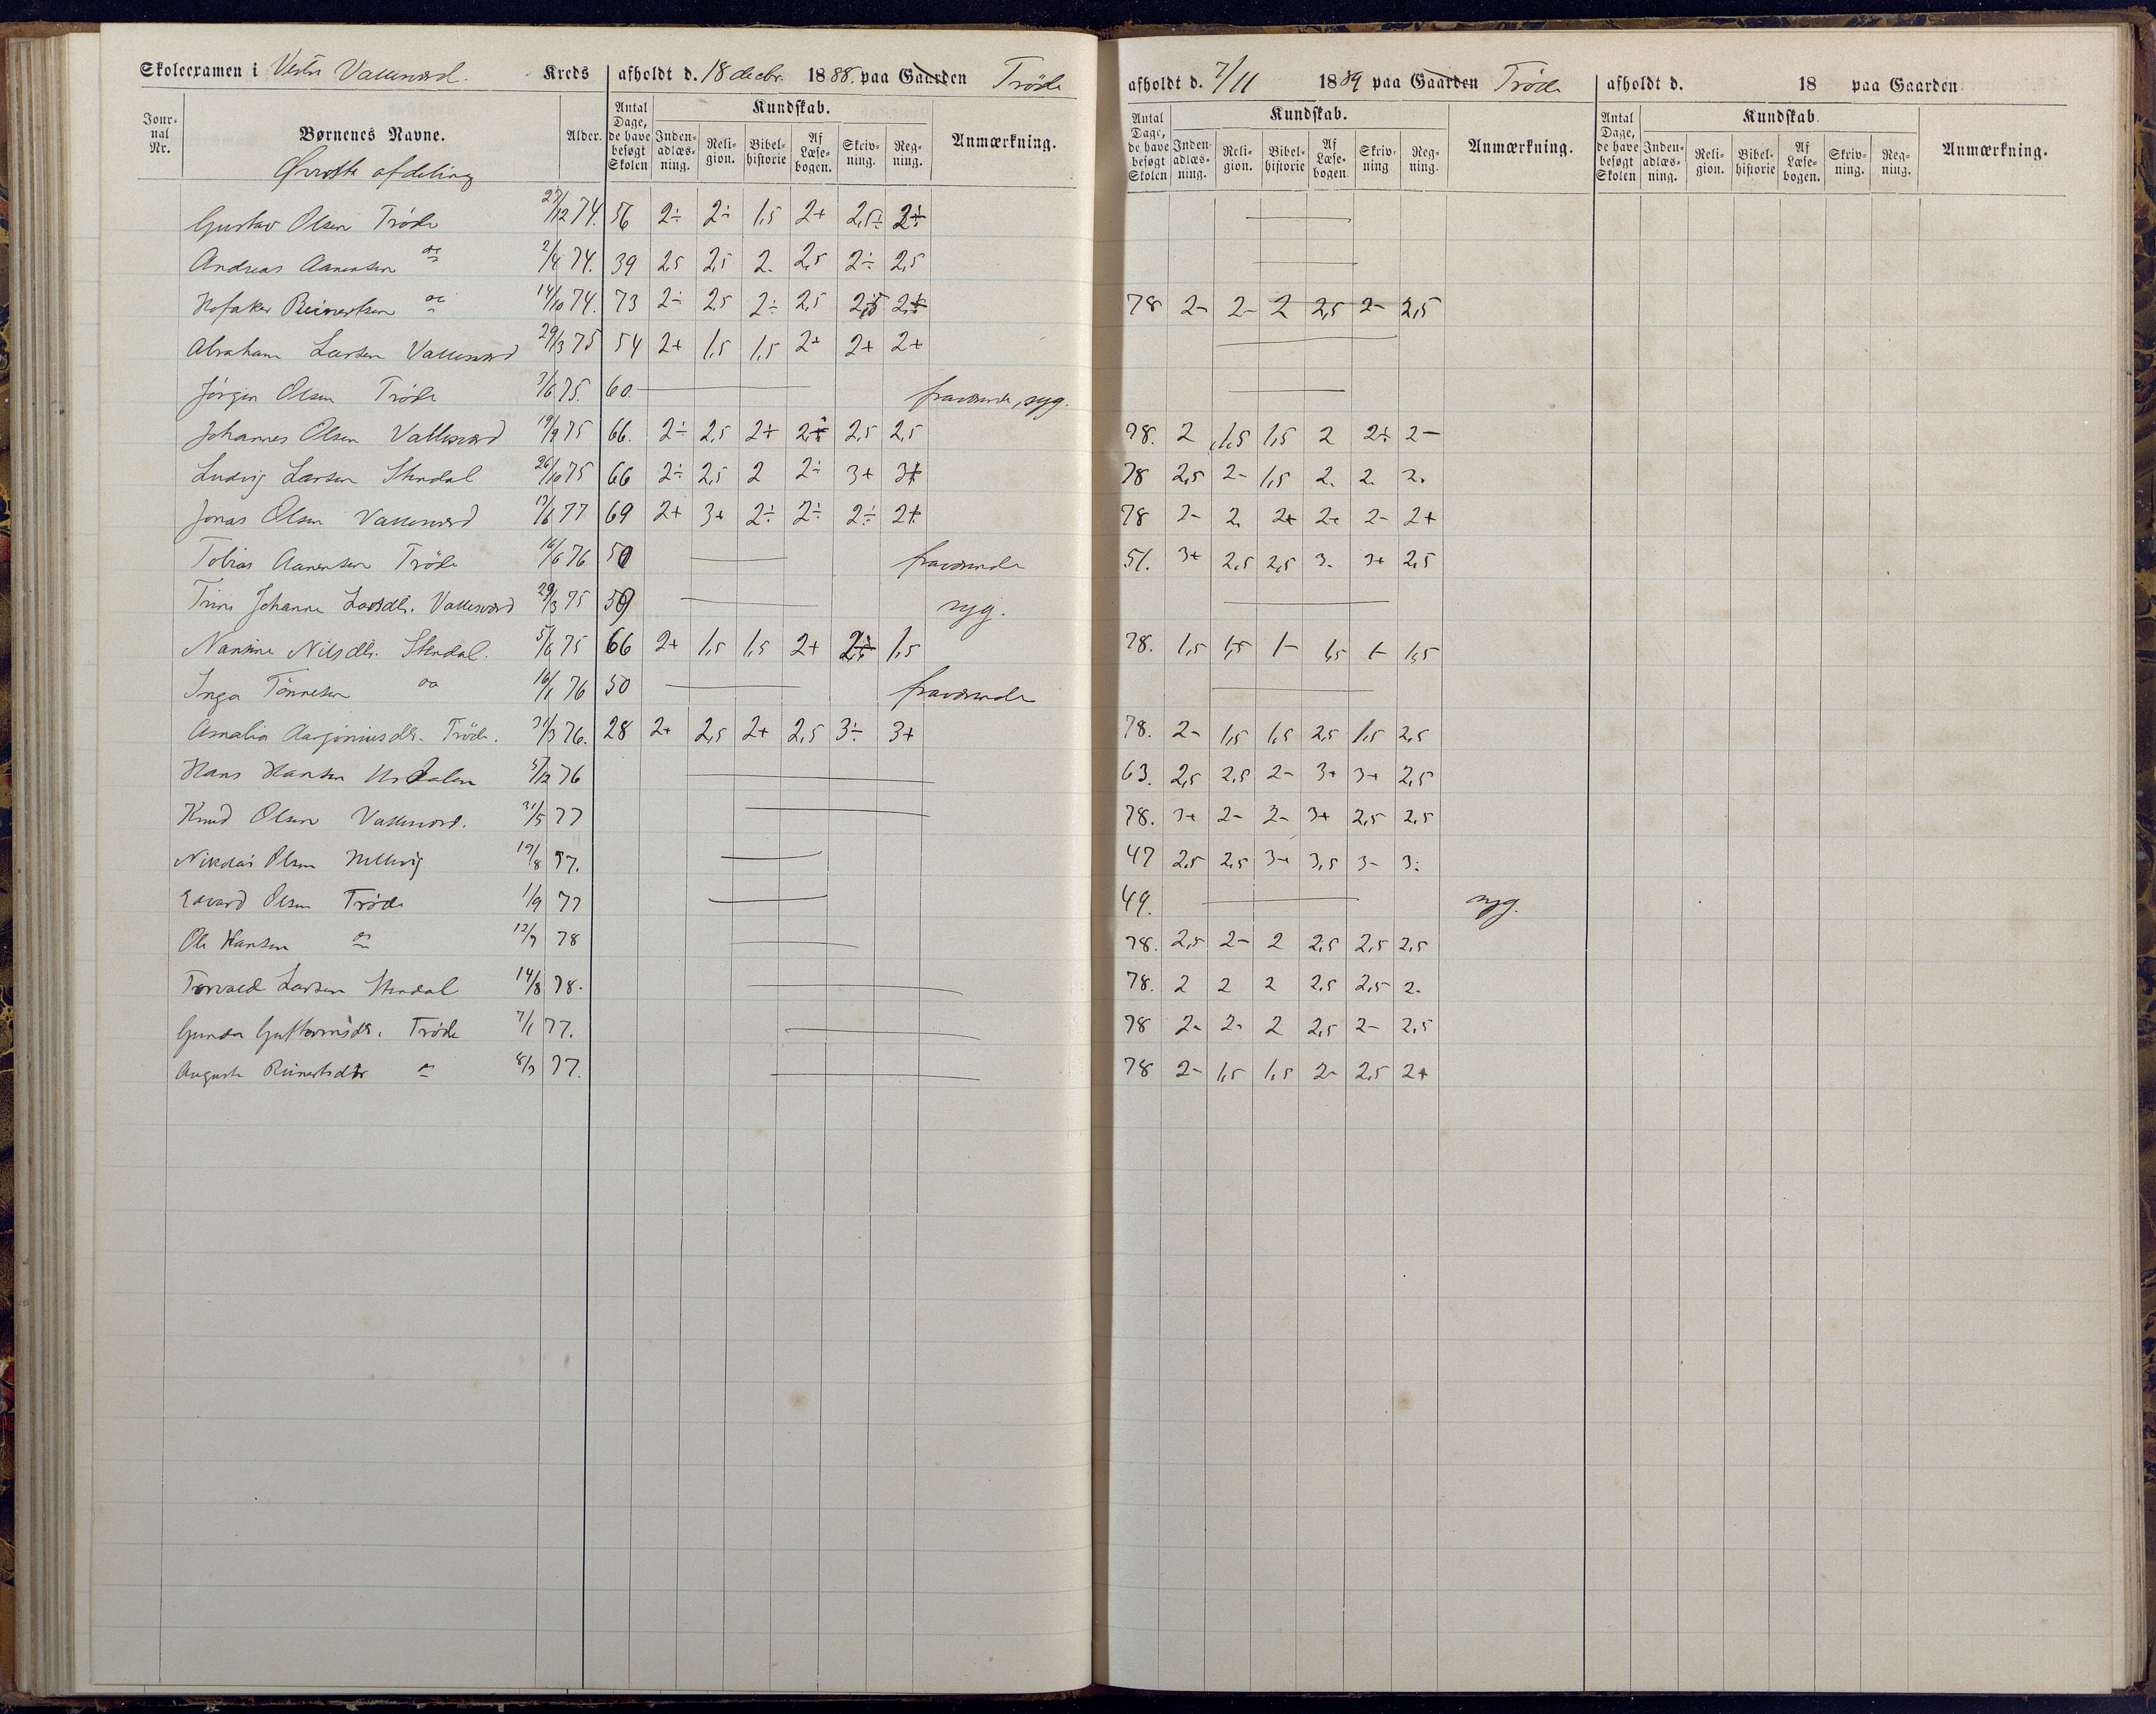 Skoleexamen i Vestre Vallesværd. Kreds afholdt d. 18 decbr. 1888. paa Gaarden Tröde
afholdt d. 7/11 1889 paa Gaarden Tröde
afholdt d. 18 paa Gaarden
Jour-nal Nr. Børnenes Navne. Alder. Antal Dage, de have besøgt Skolen Kundskab. Inden-adlæs-ning. Reli-gion. Bibel-historie Af Læse-bogen. Skriv-ning. Reg-ning. Anmærkning.
Antal Dage, de have besøgt Skolen Kundskab. Inden-adlæs-ning. Reli-gion. Bibel-historie Af Læse-bogen Skriv-ning Reg-ning. Anmærkning.
Antal Dage, de have besøgt Skolen Kundskab. Inden-adlæs-ning. Reli-gion. Bibel-historie Af Læse-bogen. Skriv-ning. Reg-ning. Anmærkning.
Øverste afdeling
Gustav Olsen Tröde 27/12 74. 56 2÷ 2÷ 1,5 2+ 2,5÷ —
Andreas Aanensen do 2/4 74. 39 2,5 2,5 2. 2,5 2÷ 2,5 —
Reinertsen do 14/10 74. 73 2÷ 2,5 2÷ 2,5 78 2- 2- 2 2,5 2- 2,5
Abraham Larsen Vallesværd 29/3 75 54 2+ 1,5 1,5 2+ 2+ 2+ —
Jörgen Olsen Tröde 7/6 75. 60. — fraværende, syg. —
Johannes Olsen Vallesværd 19/9 75 66. 2÷ 2,5 2+ 2,5 2,5 78. 2 1,5 1,5 2 2+ 2-
Ludvig Larsen Stendal 26/10 75 66 2÷ 2,5 2 2÷ 3+ 3+ 78 2,5 2- 1,5 2. 2. 2.
Jonas Olsen Vallesværd 17/6 77 69 2+ 3+ 2÷ 2÷ 2÷ 2+ 78 2- 2. 2+ 2+ 2- 2+
Tobias Aanensen Tröde 16/6 76 50 — fraværende 51. 3+ 2,5 2,5 3. 3+ 2,5
Trine Johanne Larsdtr. Vallesværd 29/3 75 59 — syg. —
Nansine Nilsdtr. Stendal. 5/6 75 66 2+ 1,5 1,5 2+ 1,5 78. 1,5 1,5 1- 1,5 1- 1,5
Inga Tönnesen do 16/1 76 50 — fraværende —
Amalia Aasjoniusdtr. Tröde. 31/3 76. 28 2+ 2,5 2+ 2,5 3÷ 3+ 78. 2- 1,5 1,5 2,5 1,5 2,5
Hans Hansen Urdalen 5/12 76 — 63. 2,5 2,5 2- 3+ 3+ 2,5
Knud Olsen Vallesværd. 31/5 77 — 78. 3+ 2- 2- 3+ 2,5 2,5
Nikolai Olsen 19/8 77. — 47 2,5 2,5 3+ 3,5 3- 3.
Edvard Olsen Tröde 1/9 77 — 49. — syg.
Ole Hansen do 12/7 78 — 78. 2,5 2- 2 2,5 2,5 2,5
Torvald Larsen Stendal 14/8 78. — 78. 2 2 2 2,5 2,5 2-
Gunda Tröde 7/1 77. — 78 2- 2- 2 2,5 2- 2,5
Auguste Reinertsdtr do 8/3 77. — 78 2- 1,5 1,5 2- 2,5 2+